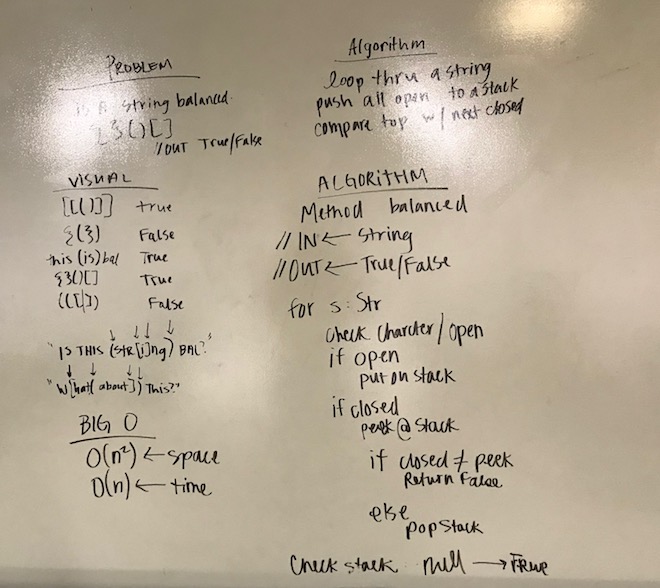 PROBLEM
is a string balanced.
{}()[]
//OUT True/False
VISUAL
[[()]] true
{(}) False
this (is) bal True
{}()[] True
(([]) False
↓ ↓↓ ↓
"IS THIS (STR[i]ng) BAL?"
↓ ↓ ↓↓
"W[hat( about]) This?"
BIG O
O(n²) ← space
O(n) ← time
Algorithm
loop thru a string
push all open to a stack
compare top w/ next closed
ALGORITHM
Method balanced
// IN ← String
// OUT ← True/False
for s: Str
check Charcter/open
if open
put on stack
if closed
peek @ stack
if closed ≠ peek
Return False
else
pop stack
Check stack null →